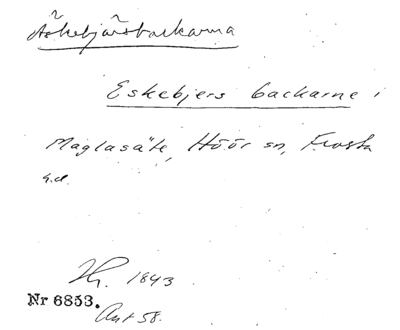 Åskebjärsbackarna
Eskebjers backarne i
Maglasäte, Höör sn, Frosta
hd.
1843
Nr 6853.
Ant 58.